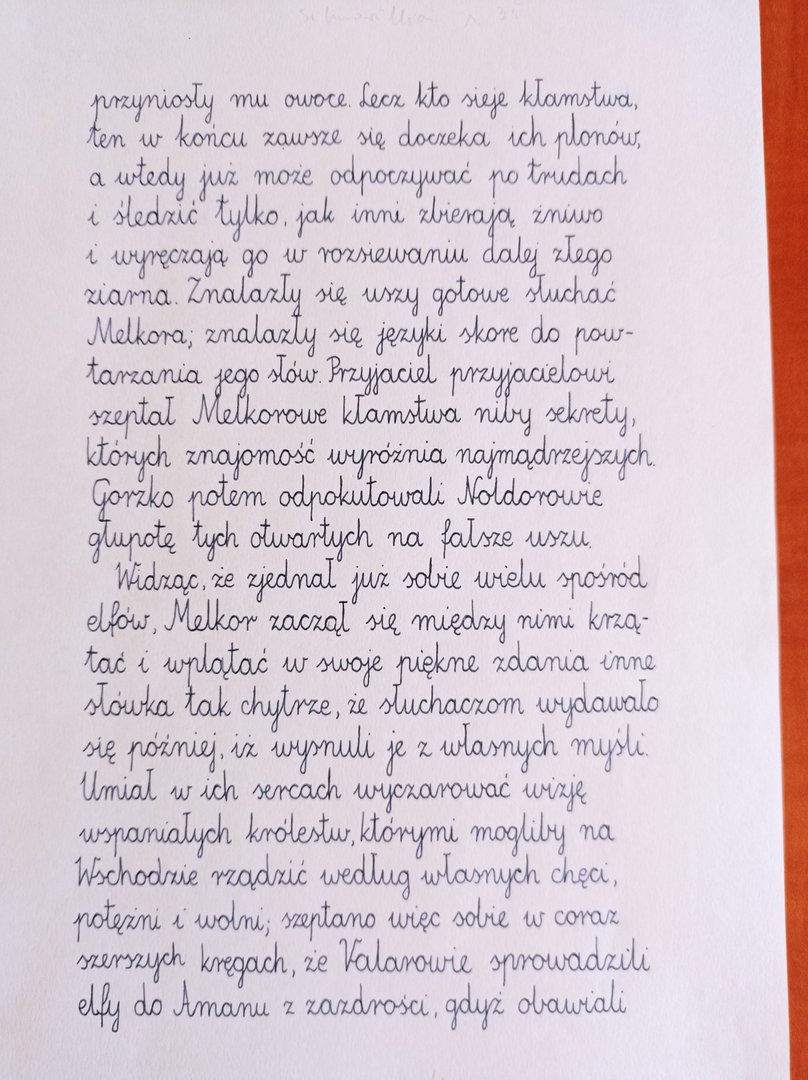 przyniosły mu owoce. Lecz kto sieje kłamstwa,
ten w końcu zawsze się doczeka ich plonów,
a wtedy już może odpoczywać po trudach
i śledzić tylko, jak inni zbierają żniwo
i wyręczają go w rozsiewaniu dalej złego
ziarna. Znalazły się uszy gotowe słuchać
Melkora; znalazły się języki skore do pow-
tarzania jego słów. Przyjaciel przyjacielowi
szeptał Melkorowe kłamstwa niby sekrety,
których znajomość wyróżnia najmądrzejszych.
Gorzko potem odpokutowali Noldorowie
głupotę tych otwartych na fałsze uszu.
Widząc, że zjednał już sobie wielu spośród
elfów, Melkor zaczął się między nimi krzą-
tać i wplątać w swoje piękne zdania inne
słówka tak chytrze, że słuchaczom wydawało
się później, iż wysnuli je z własnych myśli.
Umiał w ich sercach wyczarować wizję
wspaniałych królestw, którymi mogliby na
Wschodzie rządzić według własnych chęci,
potężni i wolni; szeptano więc sobie w coraz
szerszych kręgach, że Valarowie sprowadzili
elfy do Amanu z zazdrości, gdyż obawiali